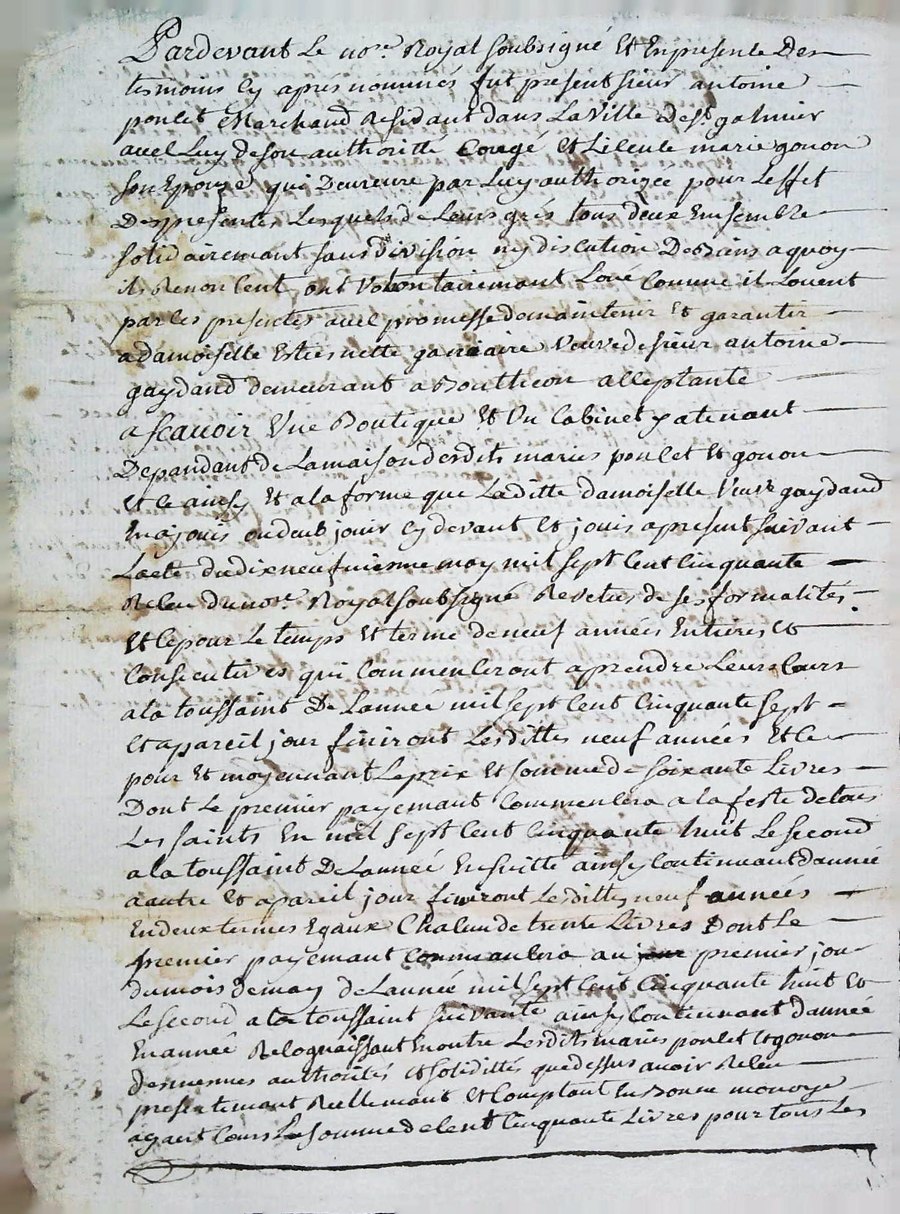 Pardevant Le nore. Royal soubsigné Et En presence Des
tesmoins Cy après nommés fut present sieur antoine
poulet Marchand Residant dans La Ville de st. galmier
avec Luy de son authoritté Congé et Licence marie gonon
son Epouze qui Demeure par Luy authorizée pour Leffet
Des presentes Lesquels de Leurs grés tous deux Ensemble
solidairemant sans division ny discution De Biens a quoy
ils Renoncent ont Volontairemant Loué Comme il Louent
par les presentes avec promesse de maintenir Et garantir
a damoiselle Estiennette veuve de sieur antoine
gaydand demeurant a Boutheon acceptante
a scavoir Une Boutique Et Un Cabinet y atenant
Dépandant de La maison desdits maries poulet Et gonon
Et ce ainsy Et a la forme que Laditte damoiselle Veuve gaydand
En a joui ou deub jouir Cy devant Et jouis a present suivant
Lacte du dix neufvieme may mil sept Cent Cinquante
Receu du nore. Royal soubsigné Revetus de ses formalités.
Et ce pour Le temps Et terme de neuf années Entieres Et
Consecutives qui Commenceront a prendre Leurs Cours
a la toussaint De Lannée mil sept Cent Cinquante sept
Et a pareil jour finiront Lesdittes neuf années Et ce
pour Et moyennant Le prix Et somme de soixante Livres
Dont Le premier payemant Commencera a la feste de tous
Les saints En mil sept Cent Cinquante huit Le second
a la toussaint De Lannée Ensuitte ainsy Continuant dannée
a autre Et a pareil jour finiront Lesdittes neuf années
En deux termes Egaux Chacun de trente Livres Dont Le
premier payemant commancera au premier jour
du mois de may de Lannée mil sept Cent Cinquante huit Et
Le second a la toussaint suivante ainsy Continuant dannée
En année Reconnaissant En outre Lesdits maries poulet Et gonon
des mesmes authorités Et solidittés que dessus avoir Receu
presentemant Reellemant Et Comptant En Bonne monoye
ayant Cours La somme de Cent Cinquante Livres pour tous Les